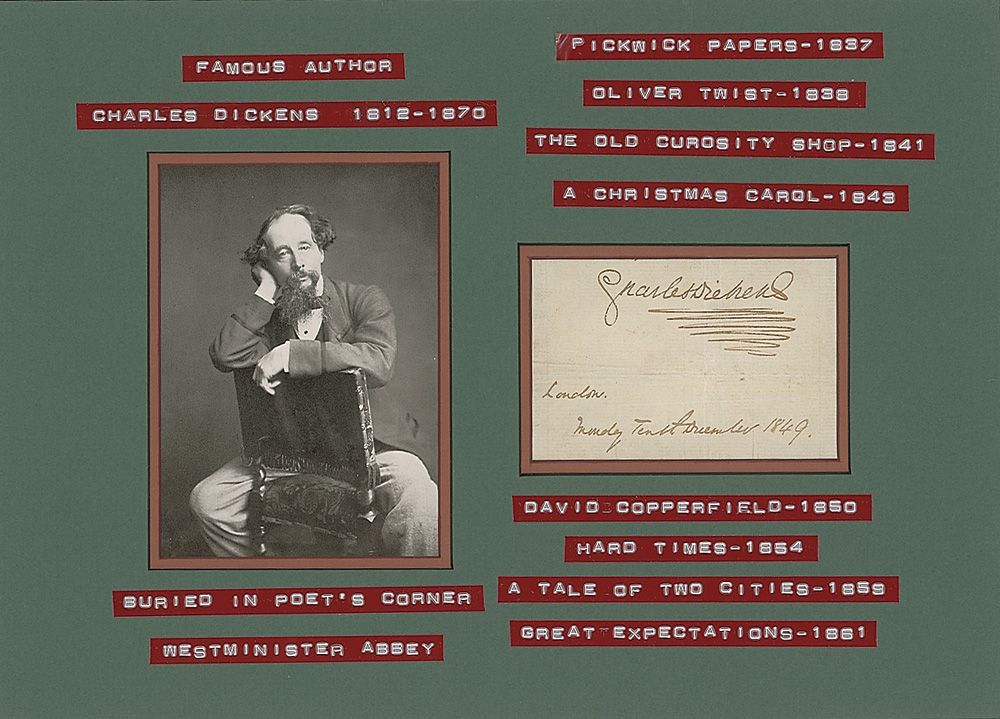 FAMOUS AUTHOR
CHARLES DICKENS 1812-1870
BURIED IN POET'S CORNER
WESTMINISTER ABBEY
PICKWICK PAPERS-1837
OLIVER TWIST-1838
THE OLD CUROSITY SHOP-1841
A CHRISTMAS CAROL-1843
Charles Dickens
London.
Monday Tenth December 1849.
DAVID COPPERFIELD-1850
HARD TIMES-1854
A TALE OF TWO CITIES-1859
GREAT EXPECTATIONS-1861